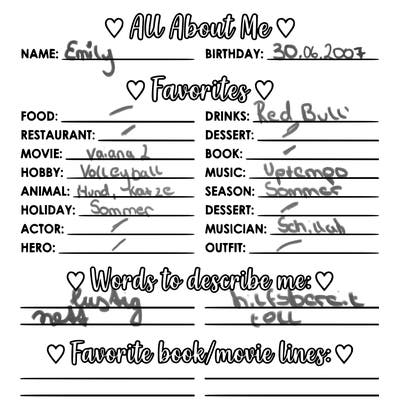 ♡ All About Me ♡
NAME: Emily BIRTHDAY: 30.06.2007
♡ Favorites ♡
FOOD: — DRINKS: Red Bull
RESTAURANT: — DESSERT: —
MOVIE: Vaiana 2 BOOK: —
HOBBY: Volleyball MUSIC: Uptempo
ANIMAL: Hund, Katze SEASON: Sommer
HOLIDAY: Sommer DESSERT: —
ACTOR: — MUSICIAN:
HERO: — OUTFIT: —
♡ Words to describe me: ♡
lustig hilfsbereit
nett toll
♡ Favorite book/movie lines: ♡